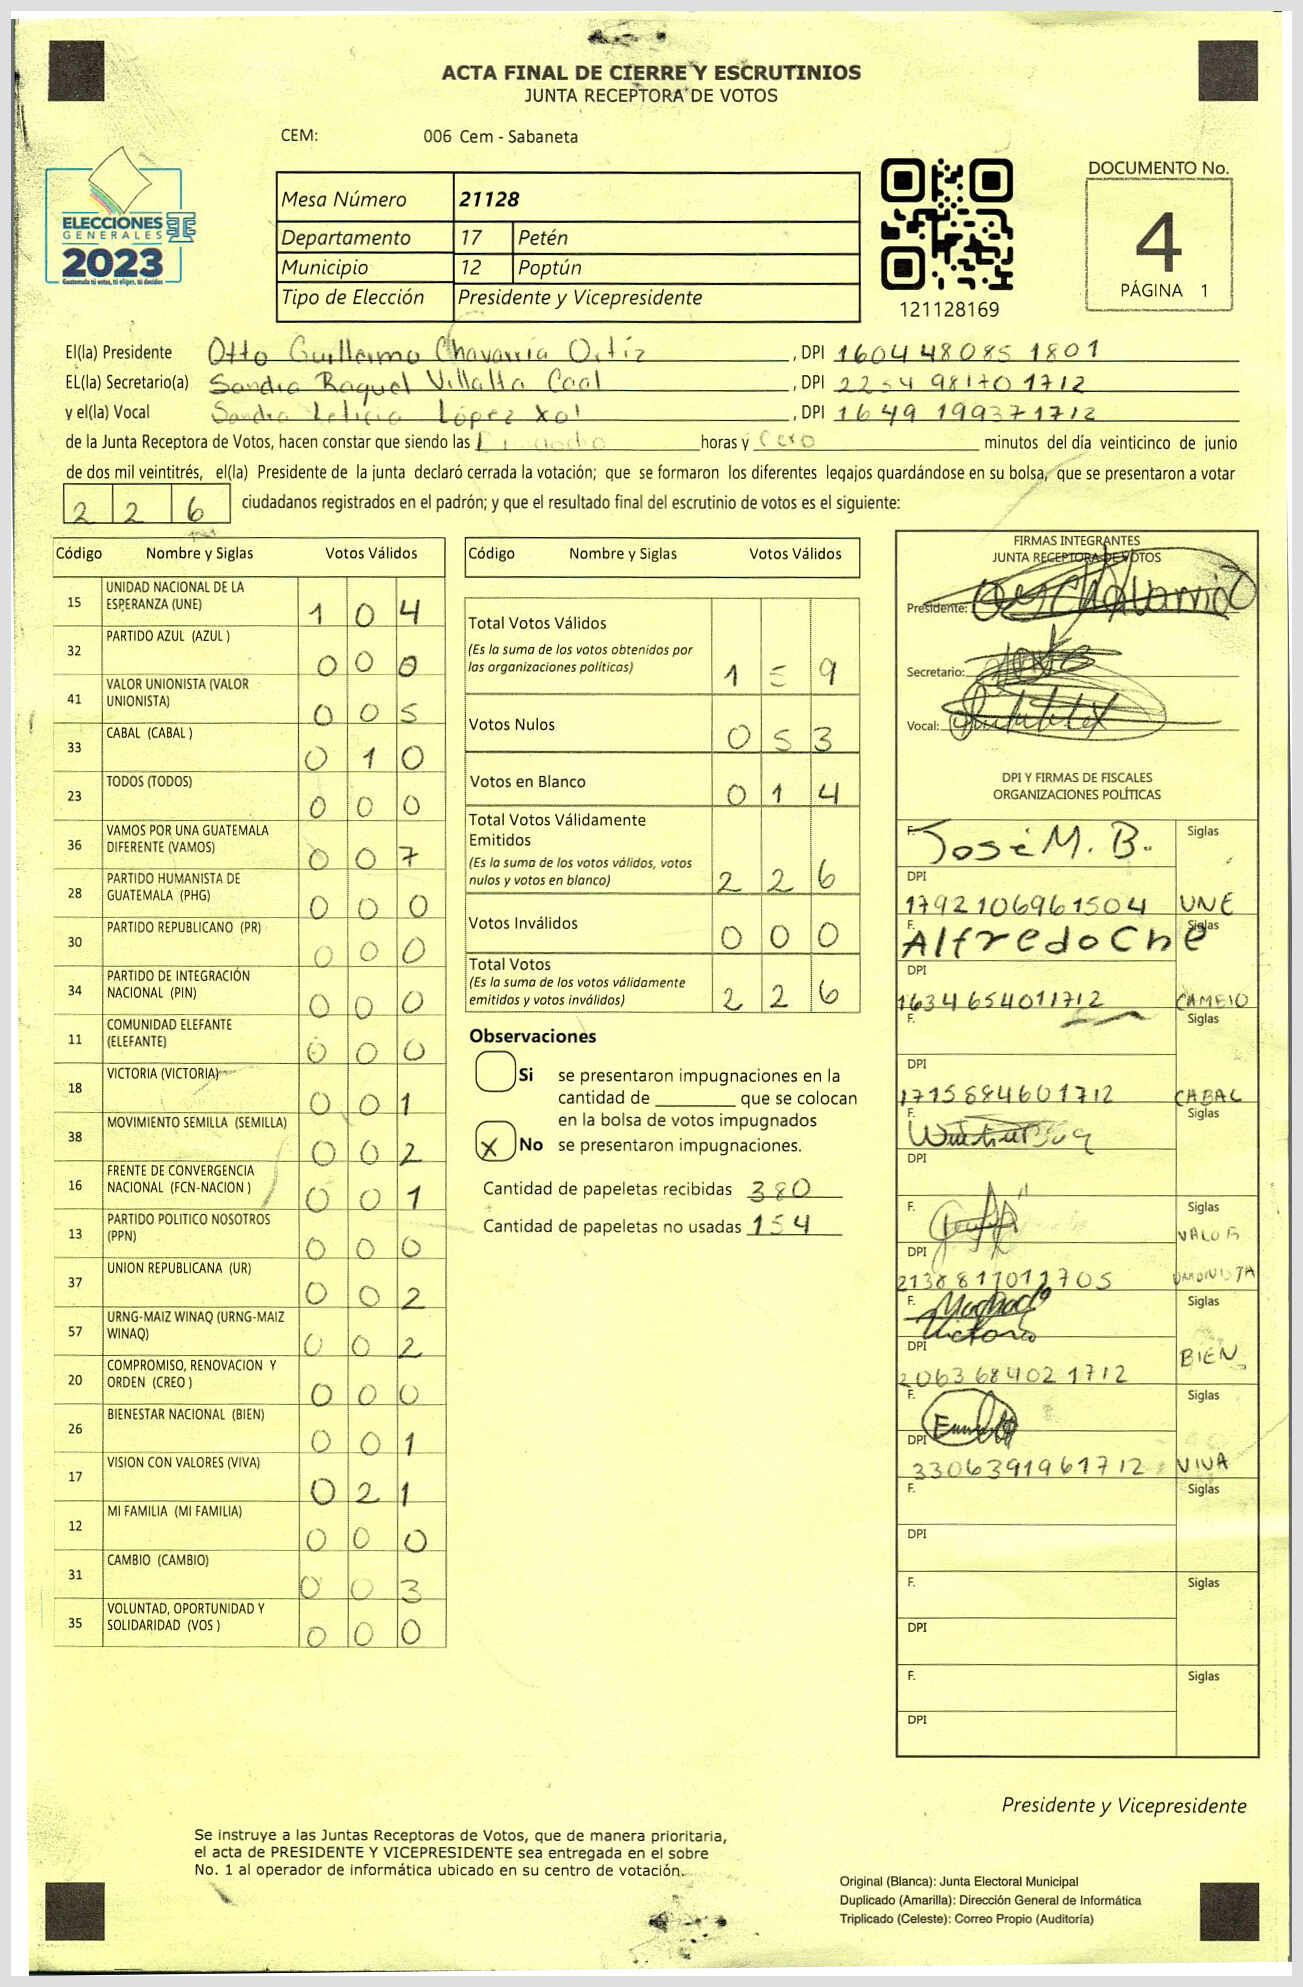 ACTA FINAL DE CIERRE Y ESCRUTINIOS
JUNTA RECEPTORA DE VOTOS
CEM: 006 Cem - Sabaneta
ELECCIONES
GENERALES
2023
Guatemala tú votas, tú eliges, tú decides
Mesa Número 21128
Departamento 17 Petén
Municipio 12 Poptún
Tipo de Elección Presidente y Vicepresidente
121128169
DOCUMENTO No.
4
PÁGINA 1
El(la) Presidente Otto Guillermo Chavarria Ortiz , DPI 1604 48085 1801
EL(la) Secretario(a) Sandra Raquel Villalta Caal , DPI 2254 98170 1712
y el(la) Vocal Sandra Leticia López Xol , DPI 1649 19937 1712
de la Junta Receptora de Votos, hacen constar que siendo las horas y Cero minutos del día veinticinco de junio
de dos mil veintitrés, el(la) Presidente de la junta declaró cerrada la votación; que se formaron los diferentes legajos quardándose en su bolsa, que se presentaron a votar
226 ciudadanos registrados en el padrón; y que el resultado final del escrutinio de votos es el siguiente:
Código Nombre y Siglas Votos Válidos
15 UNIDAD NACIONAL DE LA ESPERANZA (UNE) 104
32 PARTIDO AZUL (AZUL ) 000
41 VALOR UNIONISTA (VALOR UNIONISTA) 005
33 CABAL (CABAL ) 010
23 TODOS (TODOS) 000
36 VAMOS POR UNA GUATEMALA DIFERENTE (VAMOS) 007
28 PARTIDO HUMANISTA DE GUATEMALA (PHG) 000
30 PARTIDO REPUBLICANO (PR) 000
34 PARTIDO DE INTEGRACIÓN NACIONAL (PIN) 000
11 COMUNIDAD ELEFANTE (ELEFANTE) 000
18 VICTORIA (VICTORIA) 001
38 MOVIMIENTO SEMILLA (SEMILLA) 002
16 FRENTE DE CONVERGENCIA NACIONAL (FCN-NACION ) 001
13 PARTIDO POLITICO NOSOTROS (PPN) 000
37 UNION REPUBLICANA (UR) 002
57 URNG-MAIZ WINAQ (URNG-MAIZ WINAQ) 002
20 COMPROMISO, RENOVACION Y ORDEN (CREO ) 000
26 BIENESTAR NACIONAL (BIEN) 001
17 VISION CON VALORES (VIVA) 021
12 MI FAMILIA (MI FAMILIA) 000
31 CAMBIO (CAMBIO) 003
35 VOLUNTAD, OPORTUNIDAD Y SOLIDARIDAD (VOS ) 000
Código Nombre y Siglas Votos Válidos
Total Votos Válidos
(Es la suma de los votos obtenidos por
las organizaciones políticas) 159
Votos Nulos 053
Votos en Blanco 014
Total Votos Válidamente
Emitidos
(Es la suma de los votos válidos, votos
nulos y votos en blanco) 226
Votos Inválidos 000
Total Votos
(Es la suma de los votos válidamente
emitidos y votos inválidos) 226
Observaciones
Si se presentaron impugnaciones en la
cantidad de ________ que se colocan
en la bolsa de votos impugnados
X No se presentaron impugnaciones.
Cantidad de papeletas recibidas 380
Cantidad de papeletas no usadas 154
FIRMAS INTEGRANTES
JUNTA RECEPTORA DE VOTOS
Presidente:
Secretario:
Vocal:
DPI Y FIRMAS DE FISCALES
ORGANIZACIONES POLÍTICAS
F. José M. B. Siglas
DPI
1792106961504 UNE
F. Alfredo Che Siglas
DPI
1634654011712 CAMBIO
F. Siglas
DPI
1715884601712 CABAL
F. Siglas
DPI
F. Siglas
VALOR
DPI
2138811011705 UNIONISTA
F. Machado Siglas
Victoria
DPI
2063684021712 BIEN
F. Siglas
DPI
3306391961712 VIVA
F. Siglas
DPI
F. Siglas
DPI
F. Siglas
DPI
Presidente y Vicepresidente
Se instruye a las Juntas Receptoras de Votos, que de manera prioritaria,
el acta de PRESIDENTE Y VICEPRESIDENTE sea entregada en el sobre
No. 1 al operador de informática ubicado en su centro de votación.
Original (Blanca): Junta Electoral Municipal
Duplicado (Amarilla): Dirección General de Informática
Triplicado (Celeste): Correo Propio (Auditoría)